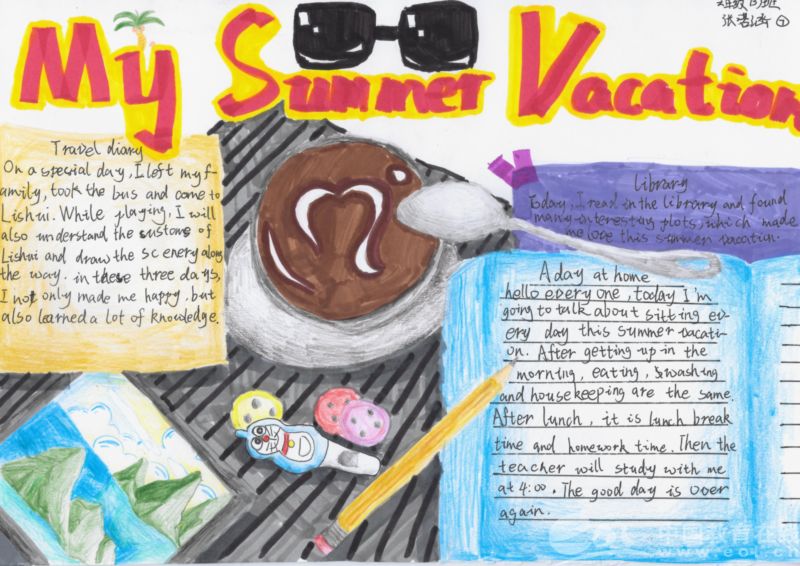 My Summer Vacation
Travel diary
On a special day, I left my f-
amily, took the bus and come to
Lishui. While playing, I will
also understand the customs of
Lishui and draw the scenery along
the way. in these three days,
I not only made me happy, but
also learned a lot of knowledge.
Library
Today, I read in the library and found
many interesting plots, which made
me love this summer vacation.
A day at home
hello every one, today I'm
going to talk about sitting ev-
ery day this summer vacati-
on. After getting up in the
morning, eating, washing
and housekeeping are the same.
After lunch, it is lunch break
time and homework time. Then the
teacher will study with me
at 4:00. The good day is over
again.
中国教育在线
www.eol.cn